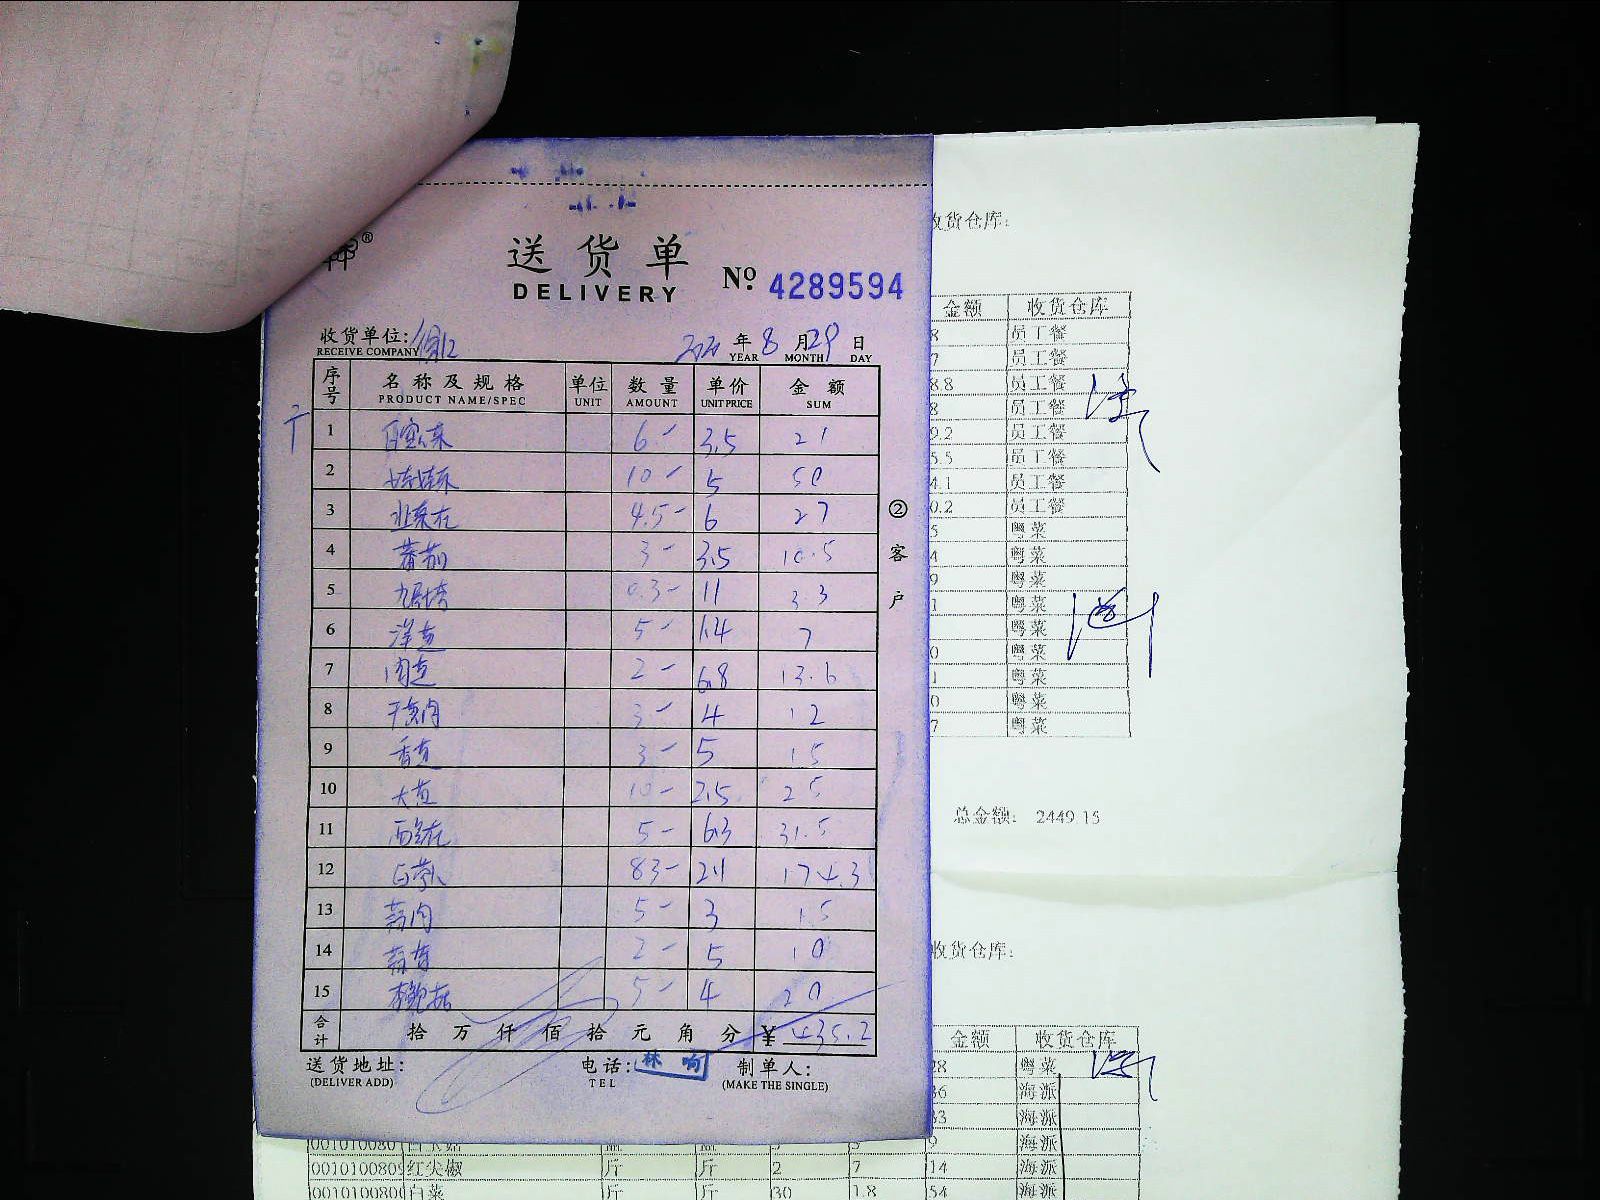 送货单
DELIVERY
№ 4289594
收货单位:
RECEIVE COMPANY
年 8 月 29 日
YEAR MONTH DAY
序号 名称及规格 单位 数量 单价 金额
PRODUCT NAME/SPEC UNIT AMOUNT UNIT PRICE SUM
1 6- 3.5 21
2 娃娃菜 10- 5 50
3 韭菜花 4.5- 6 27
4 蕃茄 3- 3.5 10.5
5 九层塔 0.3- 11 3.3
6 洋葱 5- 1.4 7
7 肉葱 2- 6.8 13.6
8 3- 4 12
9 香葱 3- 5 15
10 大葱 10- 2.5 25
11 西兰花 5- 6.3 31.5
12 83- 2.1 174.3
13 5- 3 15
14 2- 5 10
15 5- 4 20
合计 拾万仟佰拾元角分 ¥ 435.2
送货地址:
(DELIVER ADD)
电话:
TEL
制单人:
(MAKE THE SINGLE)
②客户
收货仓库:
金额 收货仓库
员工餐
员工餐
8.8 员工餐
员工餐
9.2 员工餐
5.5 员工餐
4.1 员工餐
0.2 员工餐
粤菜
粤菜
粤菜
粤菜
粤菜
粤菜
粤菜
粤菜
粤菜
总金额: 2449.15
收货仓库:
金额 收货仓库
28 粤菜
36 海派
33 海派
9 海派
红尖椒 斤 斤 2 7 14 海派
白菜 斤 斤 30 1.8 54 海派